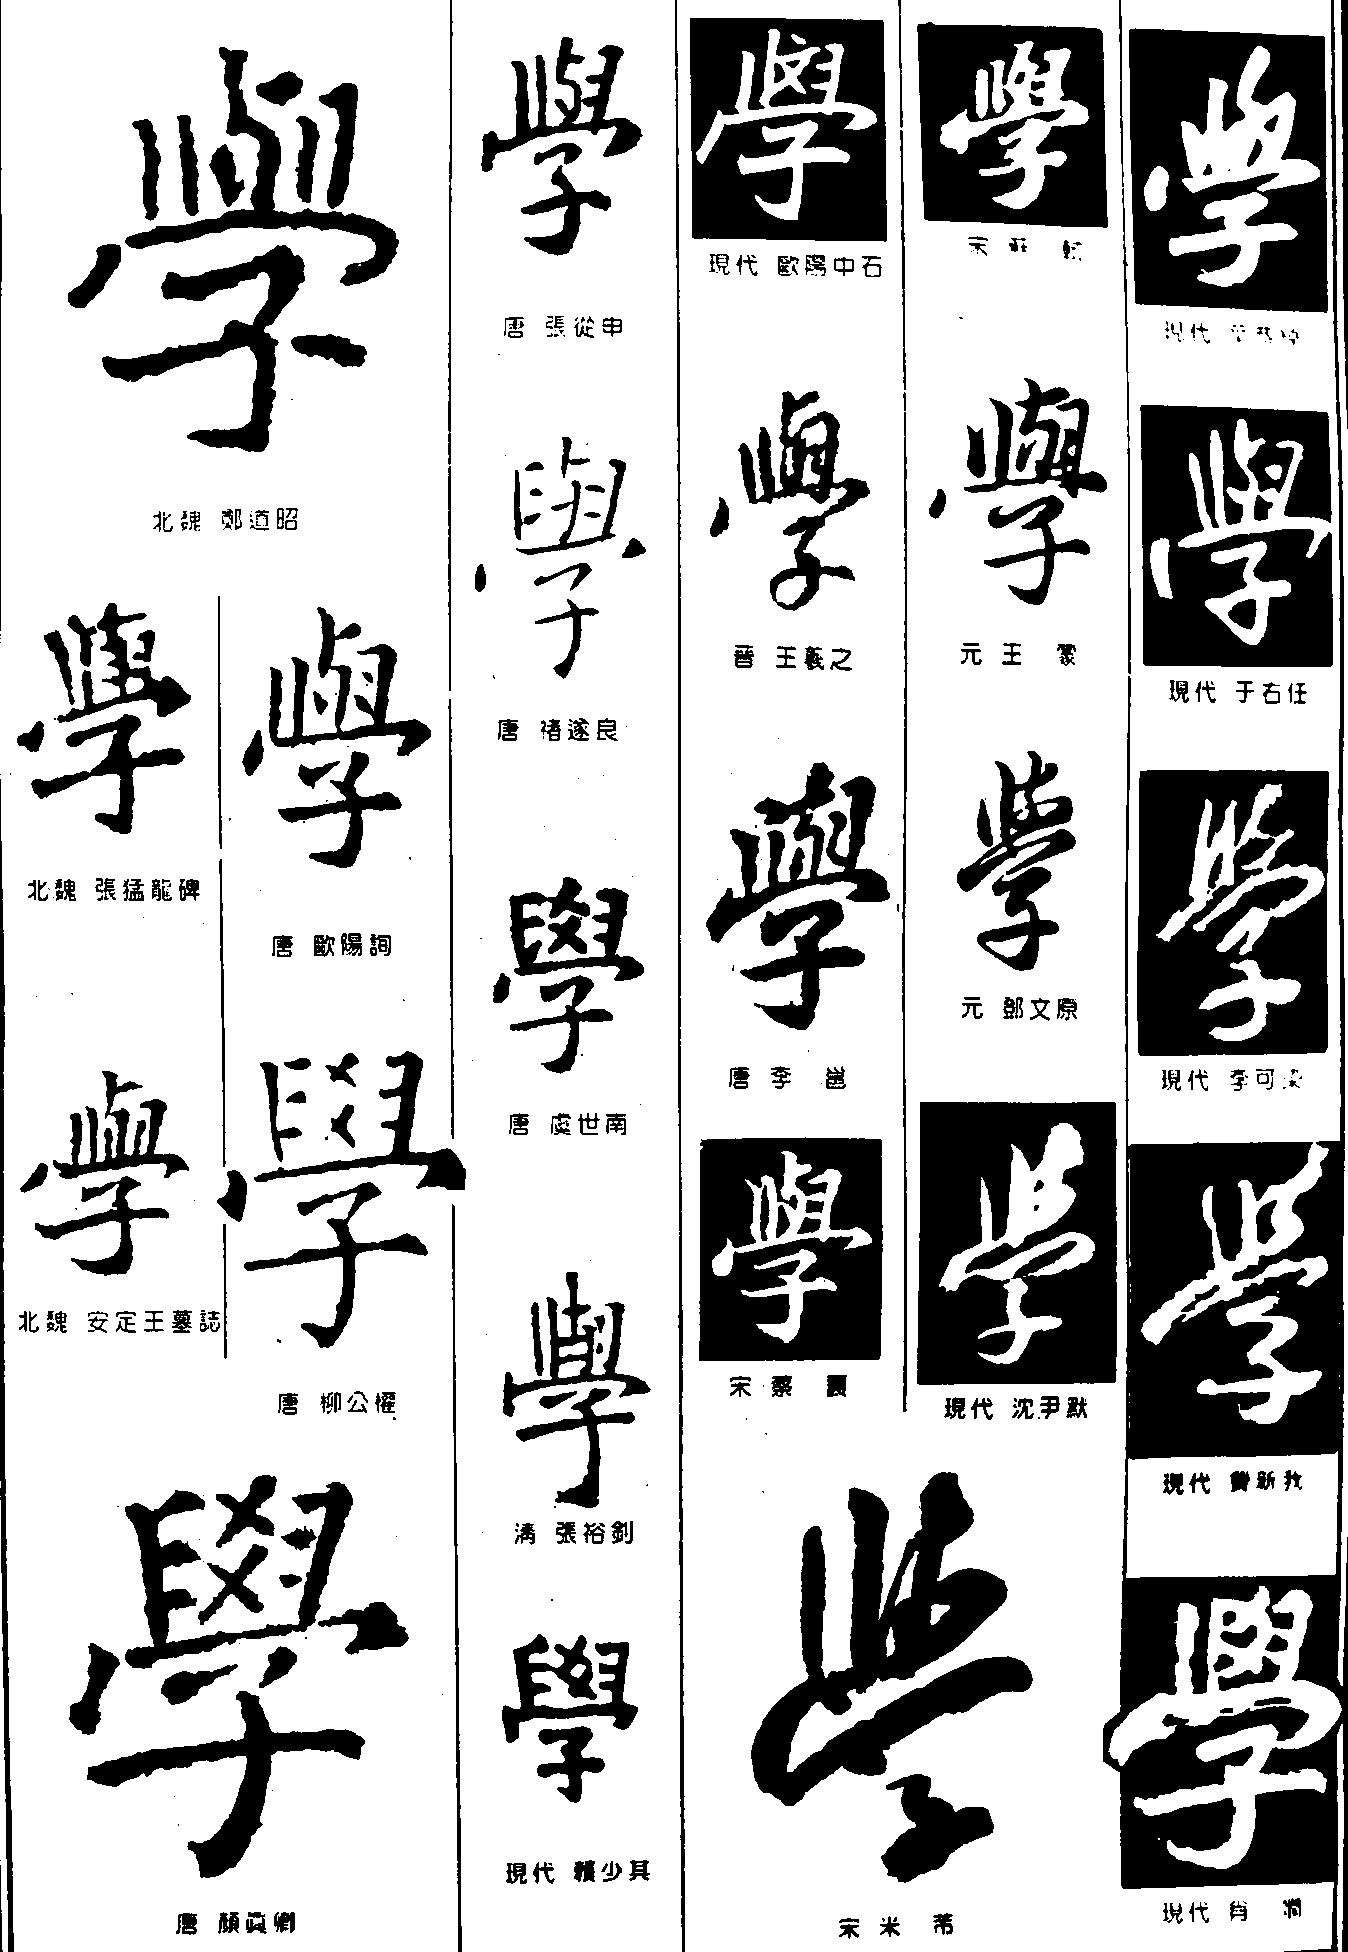 學
北魏 鄭道昭
學
北魏 張猛龍碑
學
唐 歐陽詢
學
北魏 安定王墓誌
學
唐 柳公權
學
唐 顏真卿
學
唐 張從申
學
唐 褚遂良
學
唐 虞世南
學
清 張裕釗
學
現代 賴少其
學
現代 歐陽中石
學
晉 王羲之
學
唐 李邕
學
宋 蔡襄
學
宋 米芾
學
宋 蘇軾
學
元 王蒙
學
元 鄧文原
學
現代 沈尹默
學
現代
學
現代 于右任
學
現代 李可染
學
現代 費新我
學
現代 肖嫻